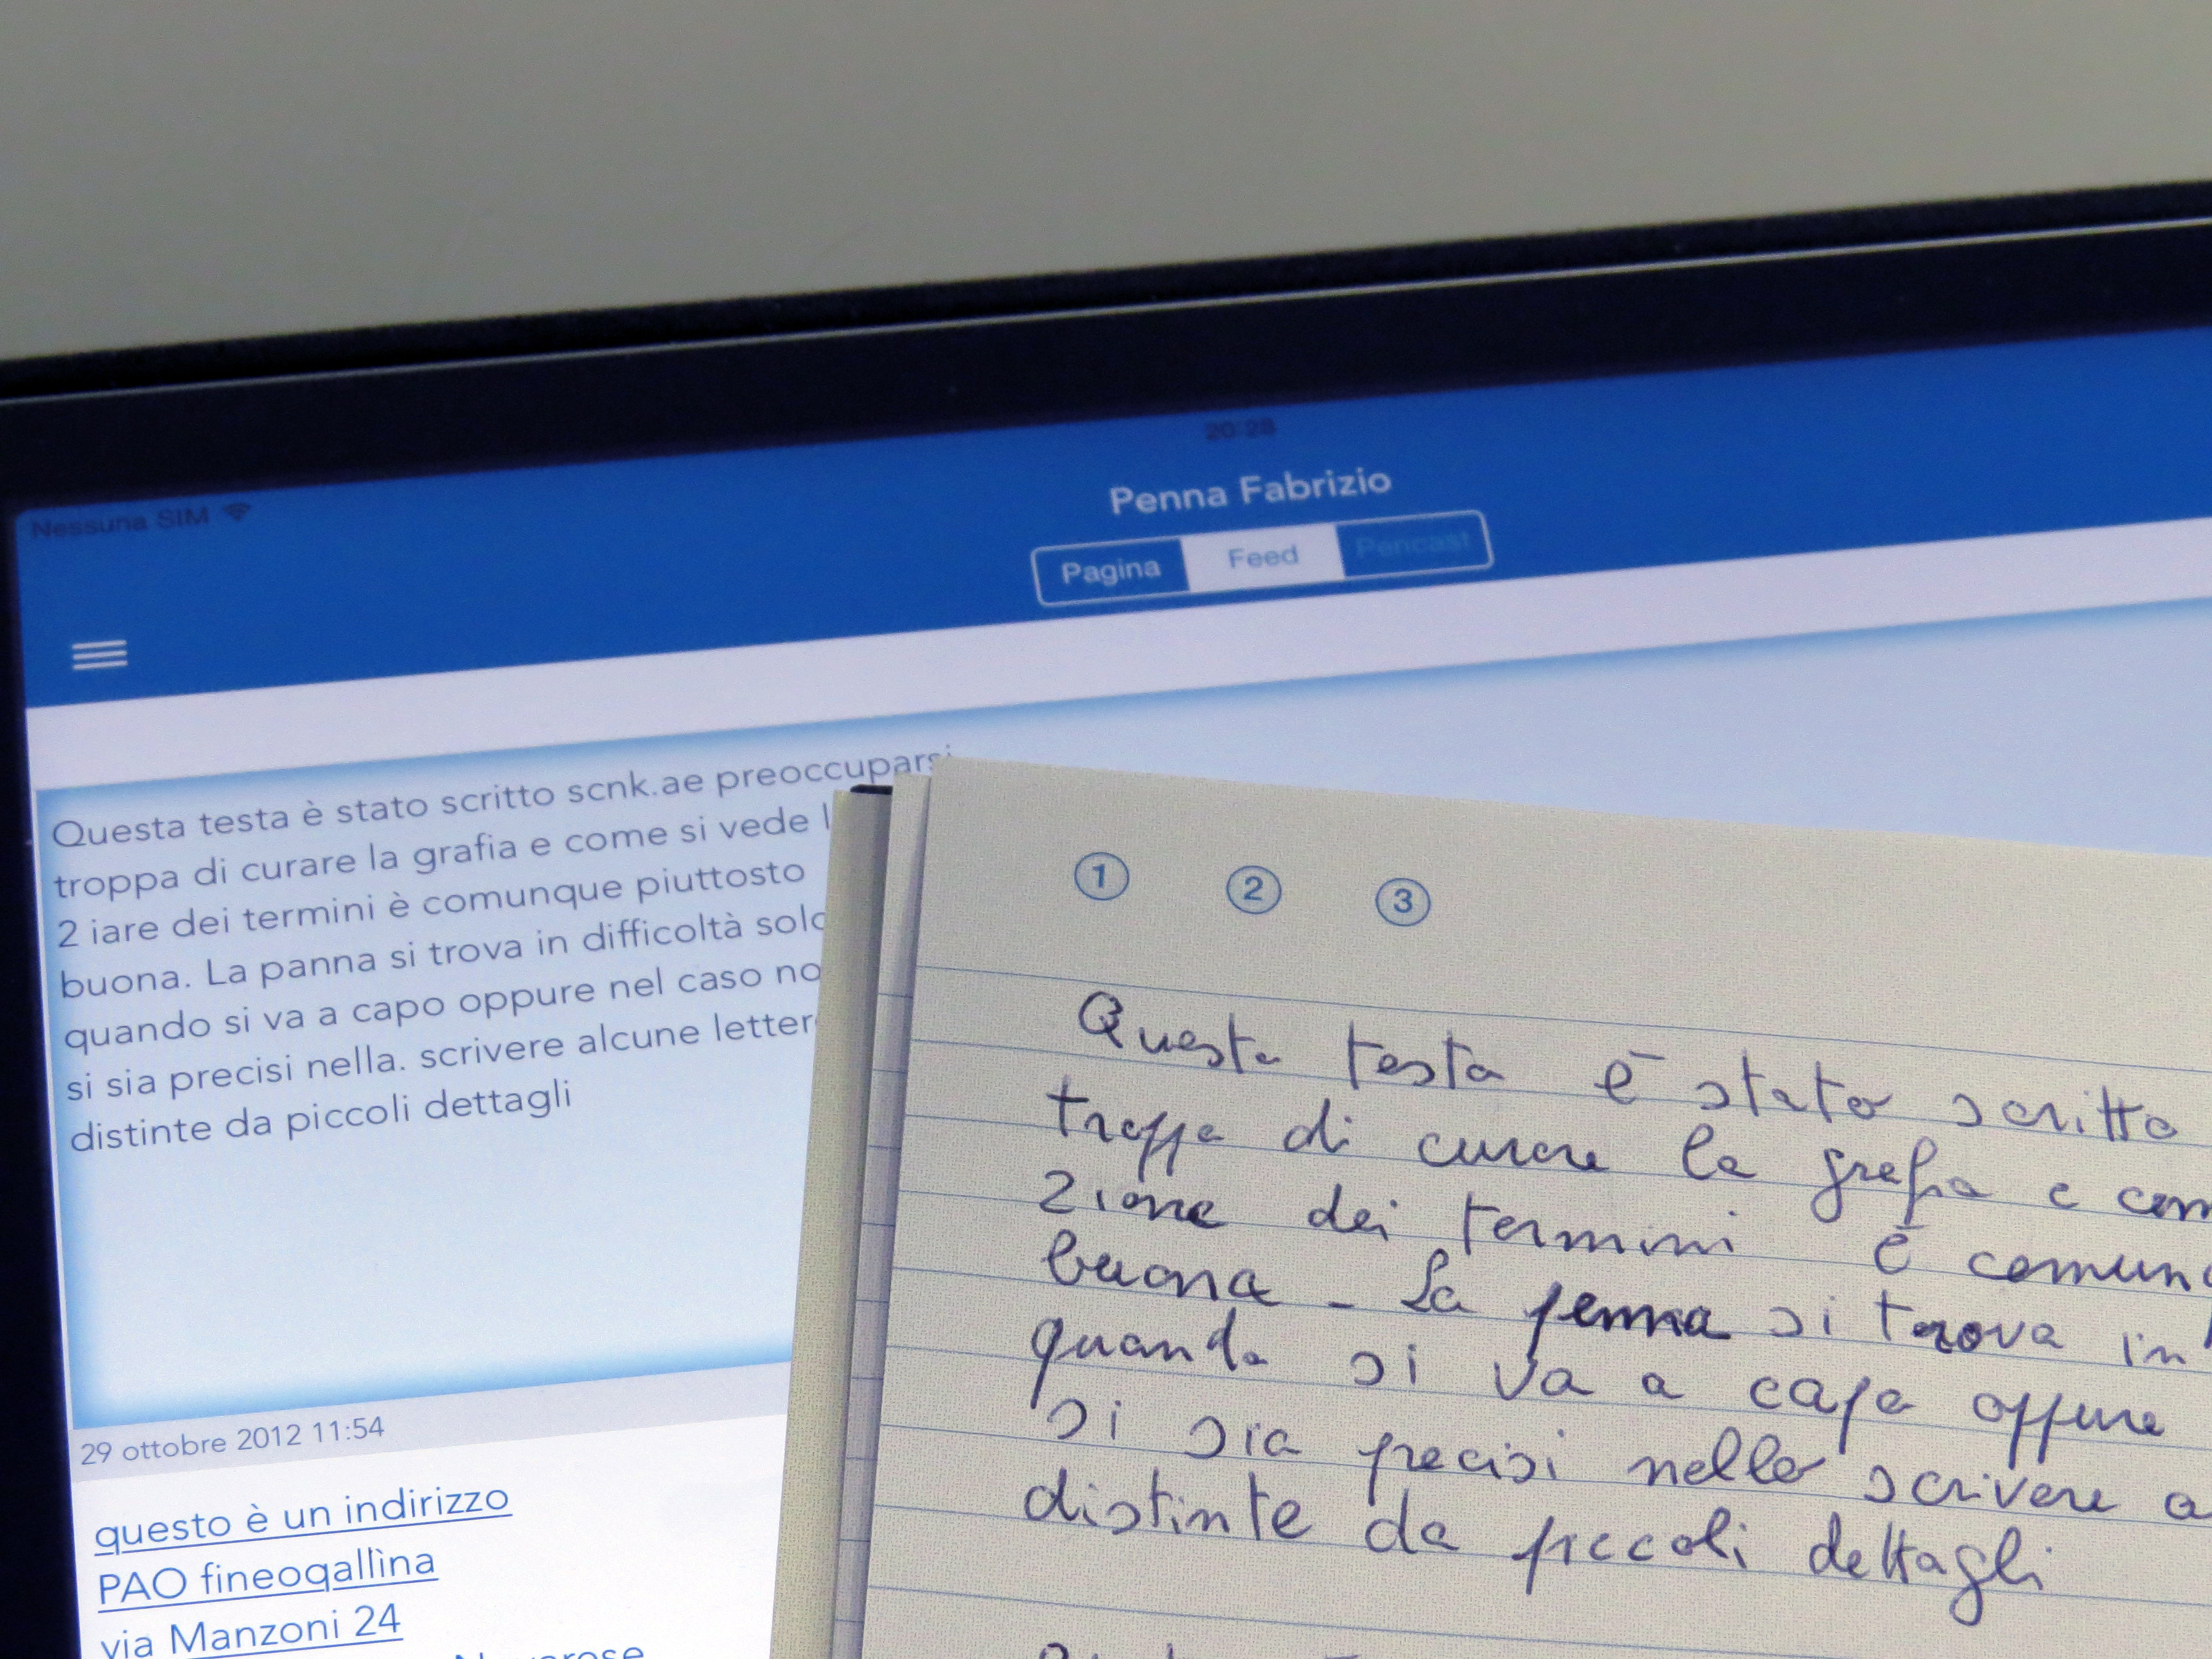 20:28
Nessuna SIM
Penna Fabrizio
Pagina Feed Pencast
Questa testa è stato scritto scnk.ae preoccuparsi
troppa di curare la grafia e come si vede l
2 iare dei termini è comunque piuttosto
buona. La panna si trova in difficoltà solo
quando si va a capo oppure nel caso no
si sia precisi nella. scrivere alcune letter
distinte da piccoli dettagli
29 ottobre 2012 11:54
questo è un indirizzo
PAO fineogallìna
via Manzoni 24
1 2 3
Questa testa è stato scritto
troppa di curare la grafia e com
zione dei termini è comun
buona - La penna si trova in
quando si va a capo oppure
si sia precisi nello scrivere a
distinte da piccoli dettagli